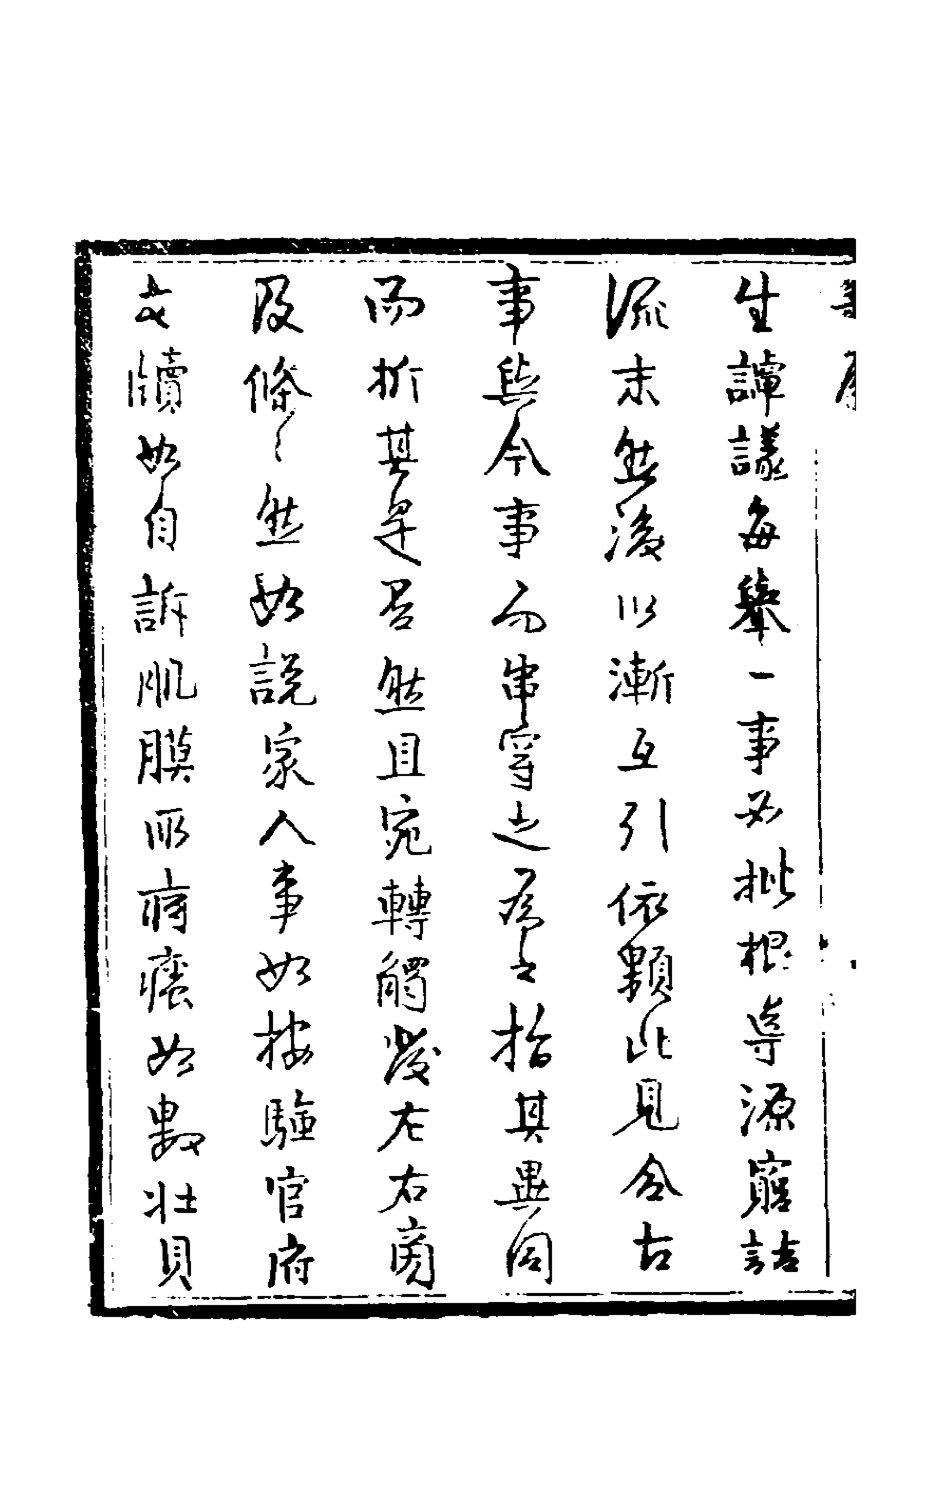 生諢議每舉一事必批根導源窮詰
流末然後以漸互引依類比見合古
事與今事而串穿之為之指其異同
而折其是否然且宛轉觸發左右商
及條〻然如說家人事如按驗官府
文牘如自訴肌膜所痛癢如數壯貝